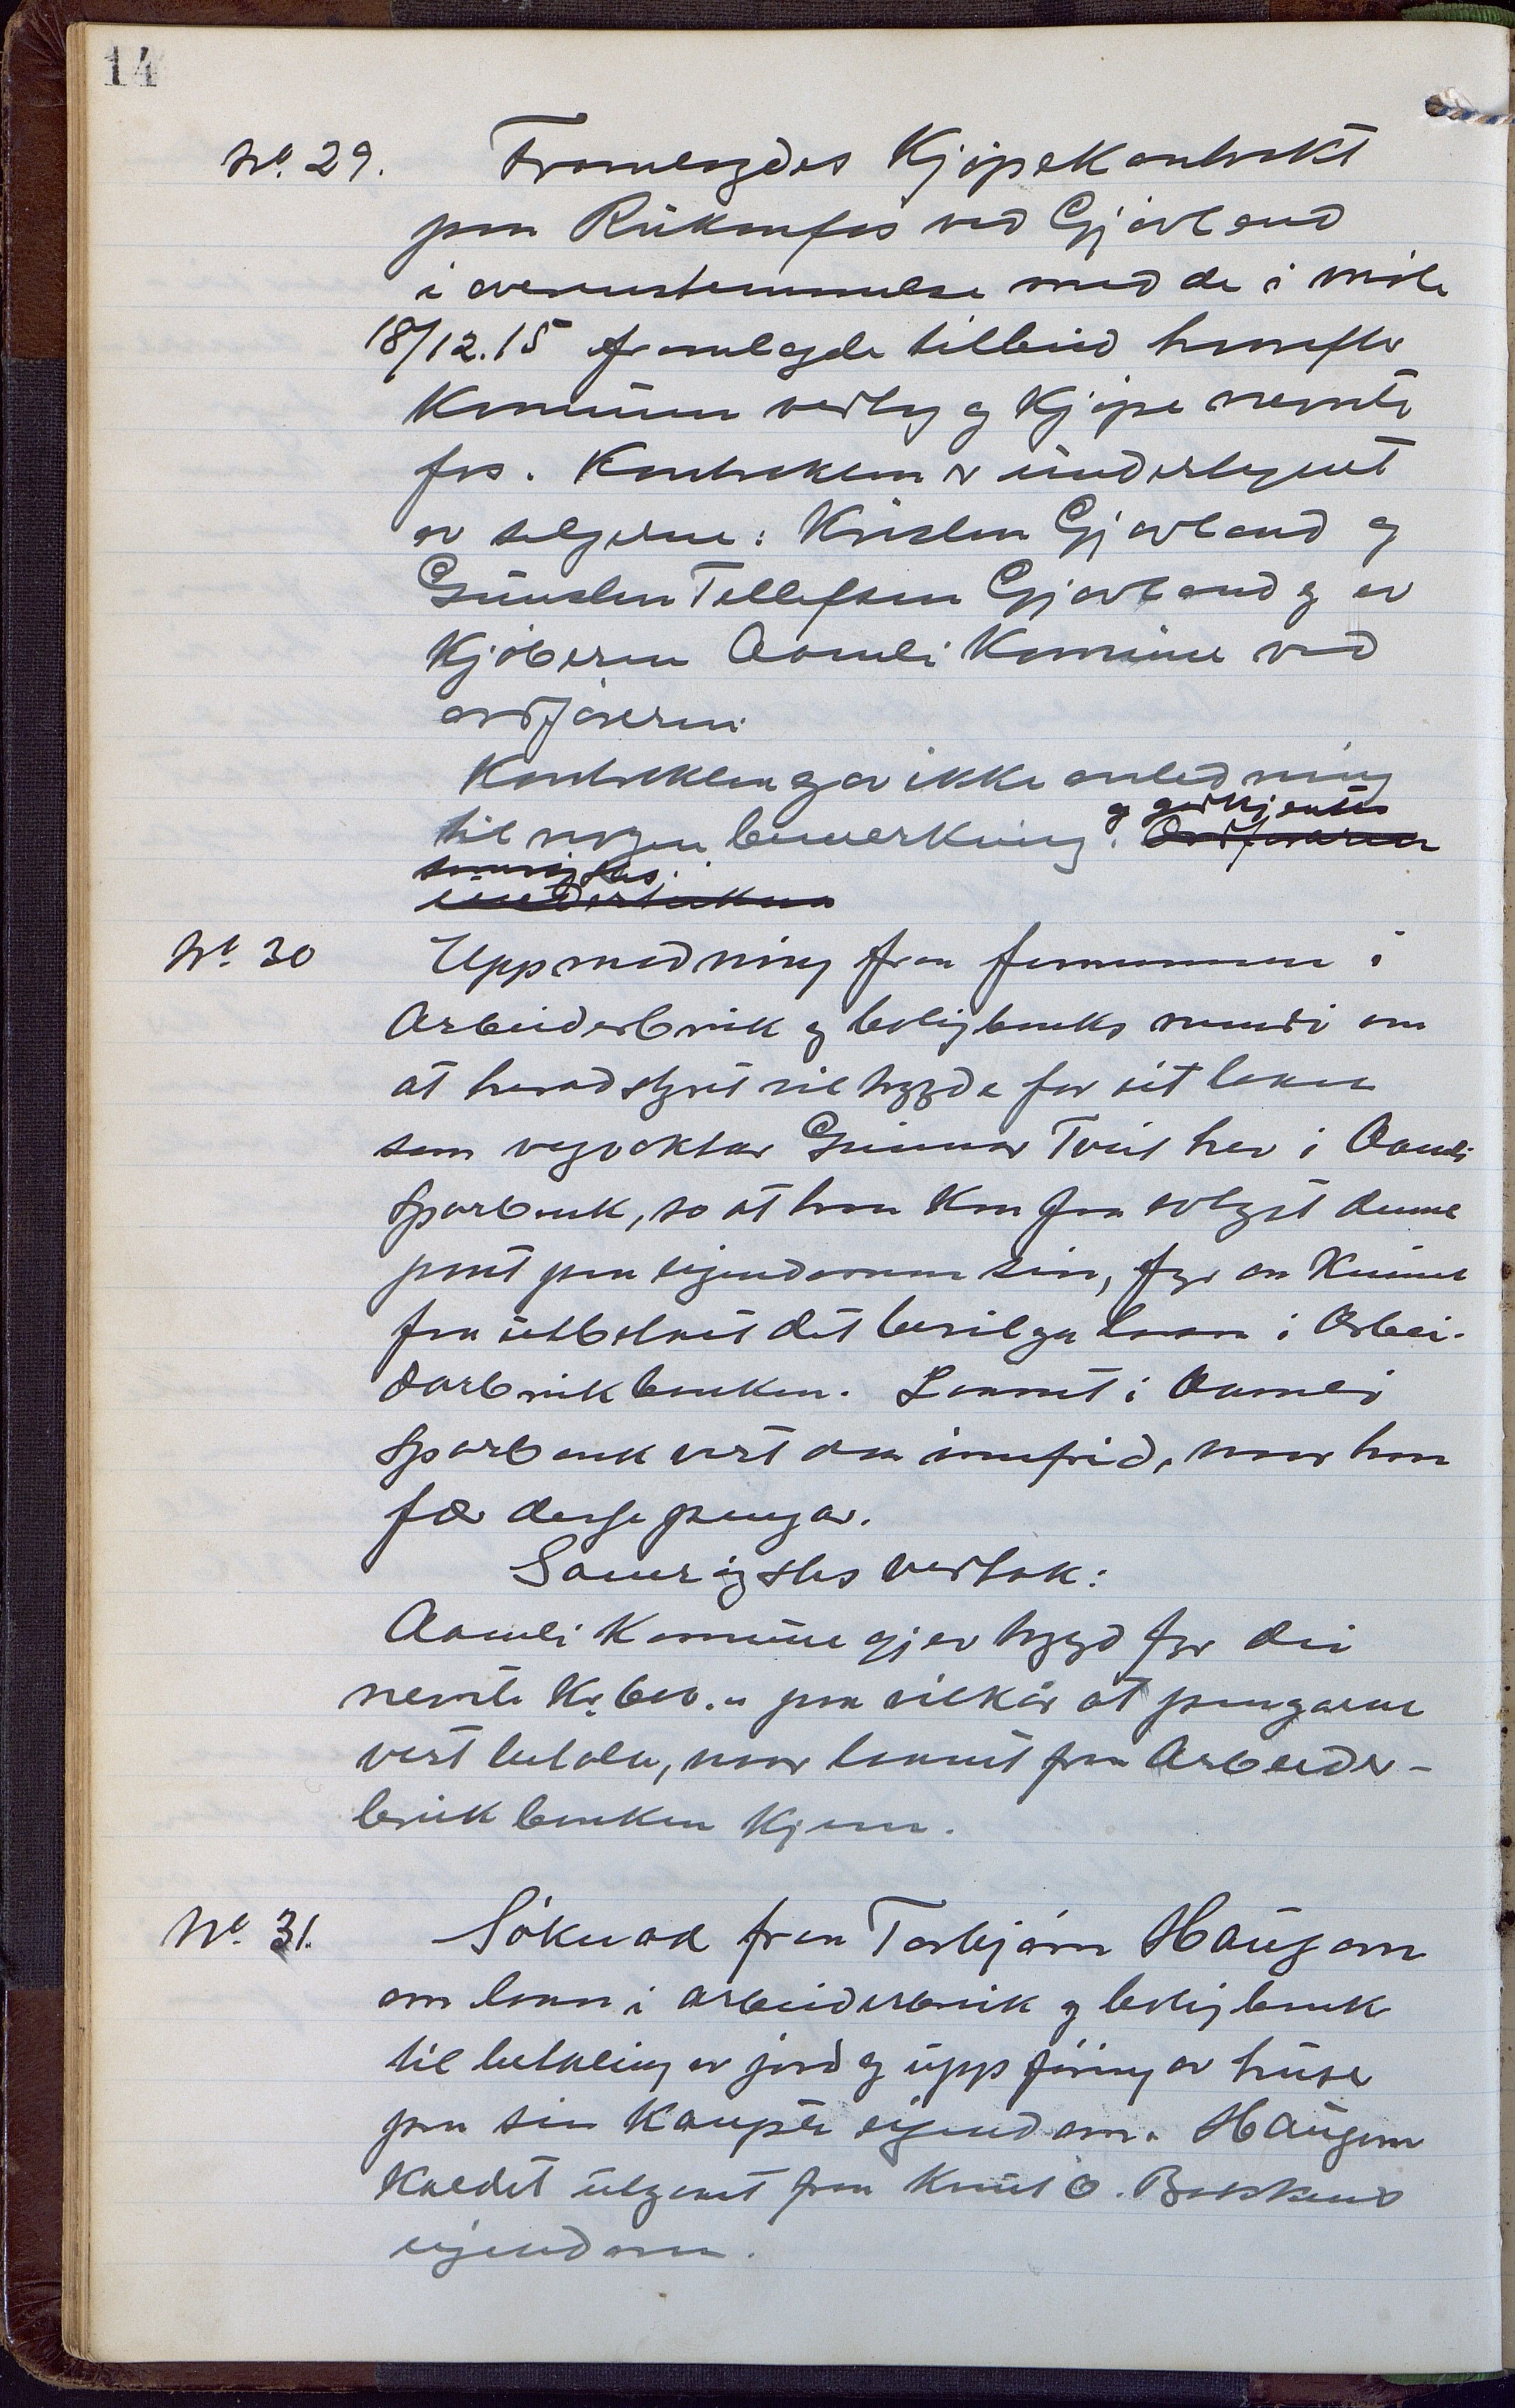 14
No. 29. Framlagdes Kjöpekontrakt
paa Rukanfos ved Gjøvland
i overenstemmelse med de i möte
18/12.15 framlagde tilbud hvorefter
Kommunen vedtog og kjöpe nemnte
fos. Kontrakten er undertegnet
av selgerne: Kristen Gjøvland og
Gunsten Tellefsen Gjøvland og av
Kjöberen Aamli Kommune ved
ordföreren.
Kontrakten gav ikke anledning
til nogen bemerkning. Ordføreren
og godkjentes
samrøistes.
undertukne
No. 30 Uppmodning fraa formannen i
Arbeiderbruk og boligbanks nemdi om
at heradstyret vil trygde for eit laan
som vegvoktar Gunnar Tveit hev i Aamli
Sparebank, so at han kan faa avlyst denne
pant paa eigendomen sin, fyr en kunne
faa utbetalt det bevilga laan i Arbei-
darbrukbanken. Laanet i Aamli
Sparbank vert daa innfrid, naar han
fær desse pengar.
Samrøystes vedtak:
Aamli Kommune gjev trygd fyr dei
nemnte Kr. 600.- paa vilkår at pengarne
vert betalte, naar laanet fraa Arbeider-
brukbanken kjem.
No. 31. Söknad fraa Torbjörn Haugom
om laan i arbeiderbruk og boligbank
til betaling av jord og uppföring av huser
paa sin kaupte eigendom. Haugom
kaldet utgaat fraa Knut O. Bakkens
eigendom.